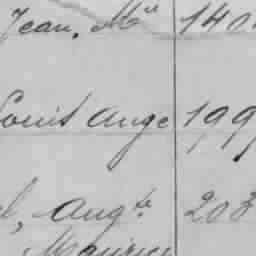 Jean, Mie 140
Louis Ange 199
l, Augte 203
Maurice